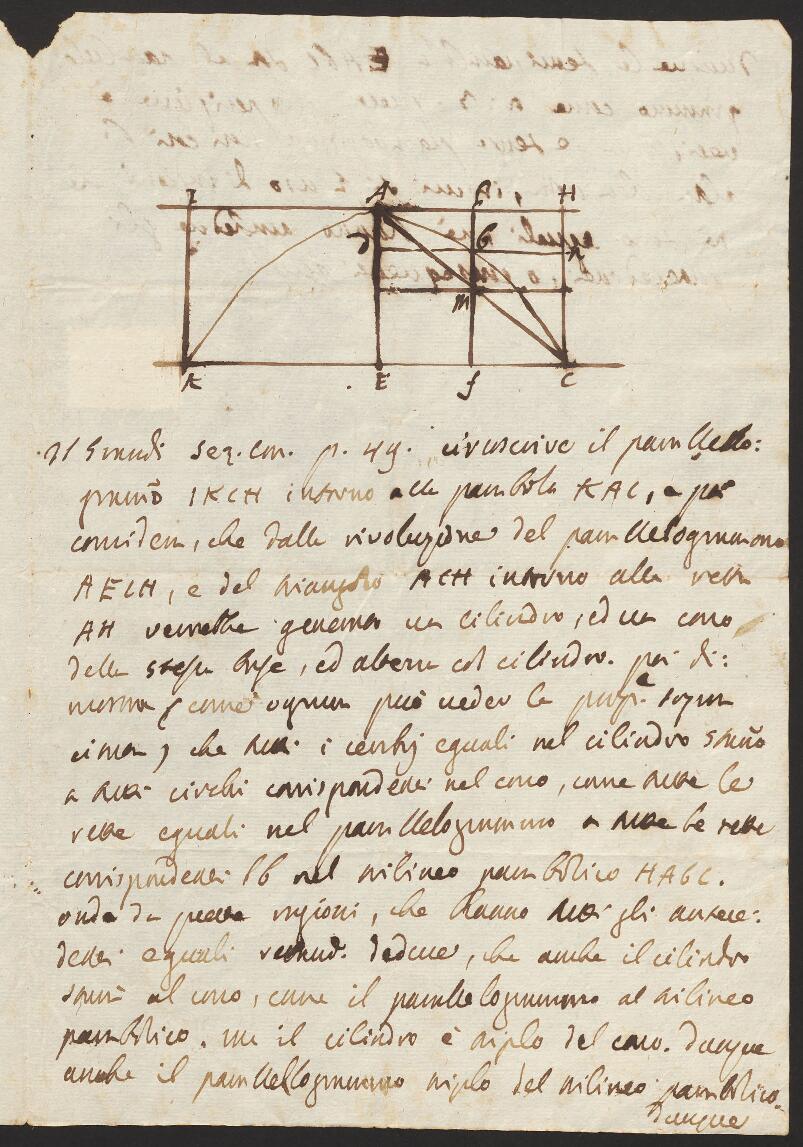 I A f H
D G R
m
K E f C
Il Grandi sez. con. p. 49. circoscrive il parallelo:
grammo IKCH intorno alla parabola KAC, e poi
considera, che dalla rivoluzione del parallelogrammo
AECH, e del triangolo ACH intorno alla retta
AH verrebbe generato un cilindro, ed un cono
della stessa base, ed altezza col cilindro. poi di:
mostra (come ognun può veder la prop.e sopra
citata) che tutti i cerchj eguali nel cilindro stanno
a tutti circhi corrispondenti nel cono, come tutte le
rette eguali nel parallelogrammo a tutte le rette
corrispondenti fG nel trilineo parabolico HAGC.
onde da queste ragioni, che hanno tutti gli antece:
denti eguali deduce, che anche il cilindro
starà al cono, come il parallelogrammo al trilineo
parabolico. ma il cilindro è triplo del cono. dunque
anche il parallelogrammo triplo del trilineo parabolico.
dunque